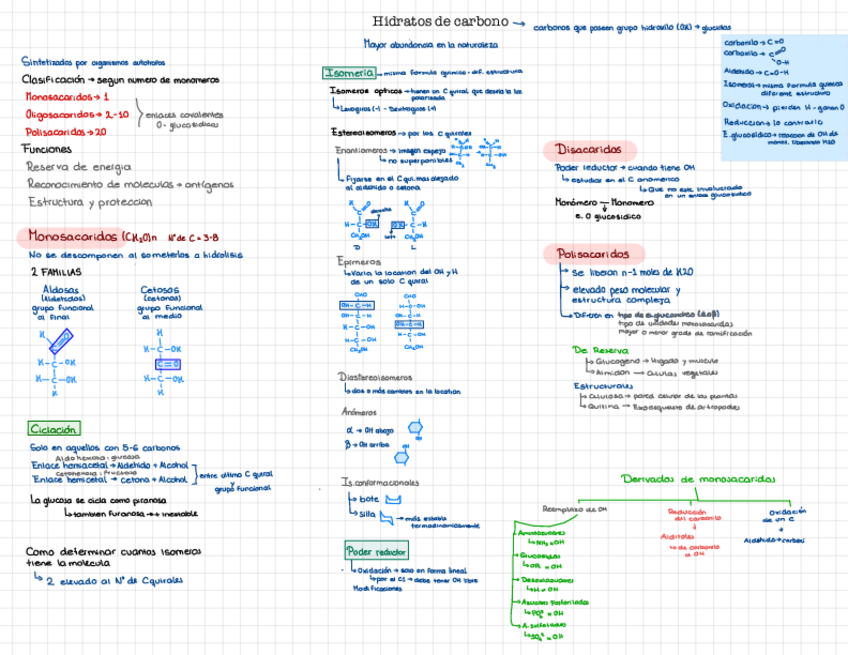 Hidratos de carbono → carbonos que poseen grupo hidroxilo (OH) → glucidos
Mayor abundancia en la naturaleza
Sintetizados por organismos autotrofos
Clasificación → segun numero de monomeros
Monosacaridos → 1
Oligosacaridos → 2-10
Polisacaridos → 20
enlaces covalentes
O-glucosidicos
Funciones
Reserva de energia
Reconocimiento de moleculas → antígenos
Estructura y proteccion
Monosacaridos (CH2O)n Nº de C = 3-8
No se descomponen al someterlos a hidrolisis
2 FAMILIAS
Aldosas
(Aldehidos)
grupo funcional
al final
Cetosas
(cetonas)
grupo funcional
al medio
Ciclación
Solo en aquellos con 5-6 carbonos
Aldohexosa: glucosa
Enlace hemiacetal → Aldehido + Alcohol
Cetohexosa: fructosa
Enlace hemicetal → cetona + Alcohol
entre ultimo C quiral
y
grupo funcional
La glucosa se cicla como piranosa
tambien furanosa → + inestable
Como determinar cuantos isomeros
tiene la molecula
2 elevado al Nº de Cquirales
Isomeria → misma formula quimica - dif. estructura
Isomeros opticos → tienen un C quiral que desvia la luz
polarizada
Levogiros (-) - Dextrogiros (+)
Estereoisomeros → por los C quirales
Enantiomeros → imagen espejo
no superponibles
Fijarse en el C qui. mas alejado
al aldehido o cetona
D L
Epimeros
Varia la location del OH y H
de un solo C quiral
Diastereoisomeros
dos o más cambios en la location
Anómeros
α → OH abajo
β → OH arriba
Is. conformacionales
bote
silla → más estable
termodinamicamente
Poder reductor
Oxidación → solo en forma lineal
por el C1 → debe tener OH libre
Modificaciones
carbonilo → C=O
carboxilo → C=O
O-H
Aldehido → C=O-H
Isomeria → misma formula quimica
diferente estructura
Oxidacion → pierden H - ganan O
Reduccion → lo contrario
E. glucosidico → reaccion de OH de
monos. liberando H2O
Disacaridos
Poder reductor → cuando tiene OH
estudiar en el C anomerico
Que no este involucrado
en un enlace glucosidico
Monómero — Monomero
e. O glucosidico
Polisacaridos
Se liberan n-1 moles de H2O
elevado peso molecular y
estructura compleja
Difieren en tipo de e. glucosidico (α o β)
tipo de unidades monosacaridas
mayor o menor grado de ramificación
De Reserva
Glucogeno → Higado y musculo
Almidon → Celulas vegetales
Estructurales
Celulosa → pared celular de las plantas
Quitina → Exoesqueleto de artropodos
Derivados de monosacaridos
Reemplazo de OH
Aminoazucares
NH2 x OH
Glucosidos
OR x OH
Desoxiazucares
H x OH
Azucares fosforilados
A. sulfatados
Reducción
del carbonilo
Alditoles
de carbonilo
a OH
Oxidación
de un C